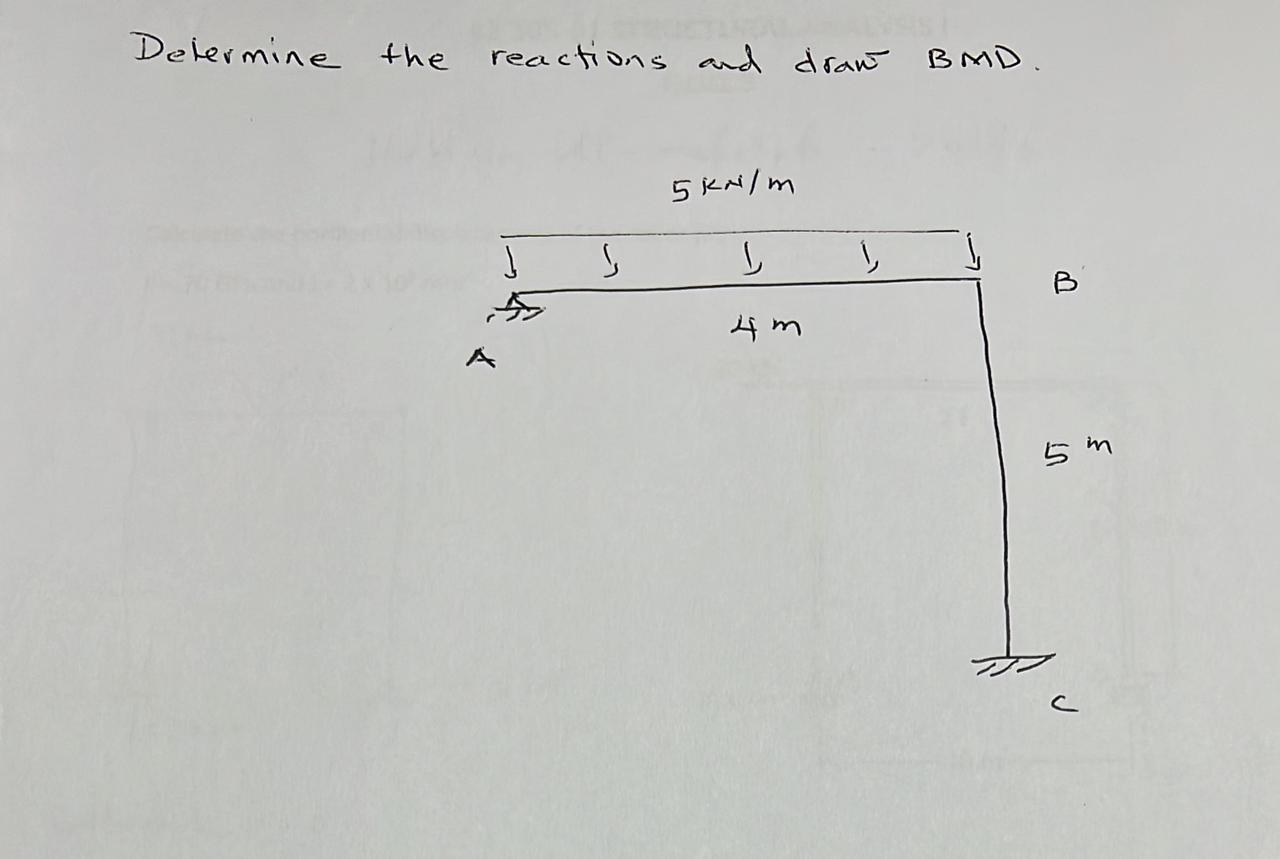 Determine the reactions and draw BMD.
5 KN/m
B
4 m
A
5 m
C